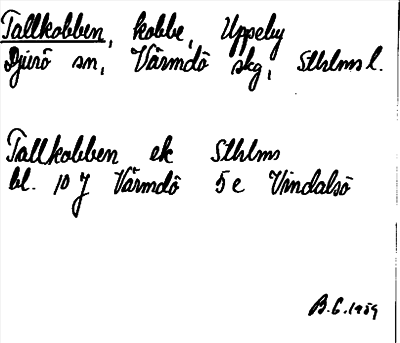 Tallkobben, kobbe, Uppeby
Djurö sn, Värmdö skg, Sthlms l.
Tallkobben ek Sthlms
bl. 10 J Värmdö 5e Vindalsö
B.C. 1959